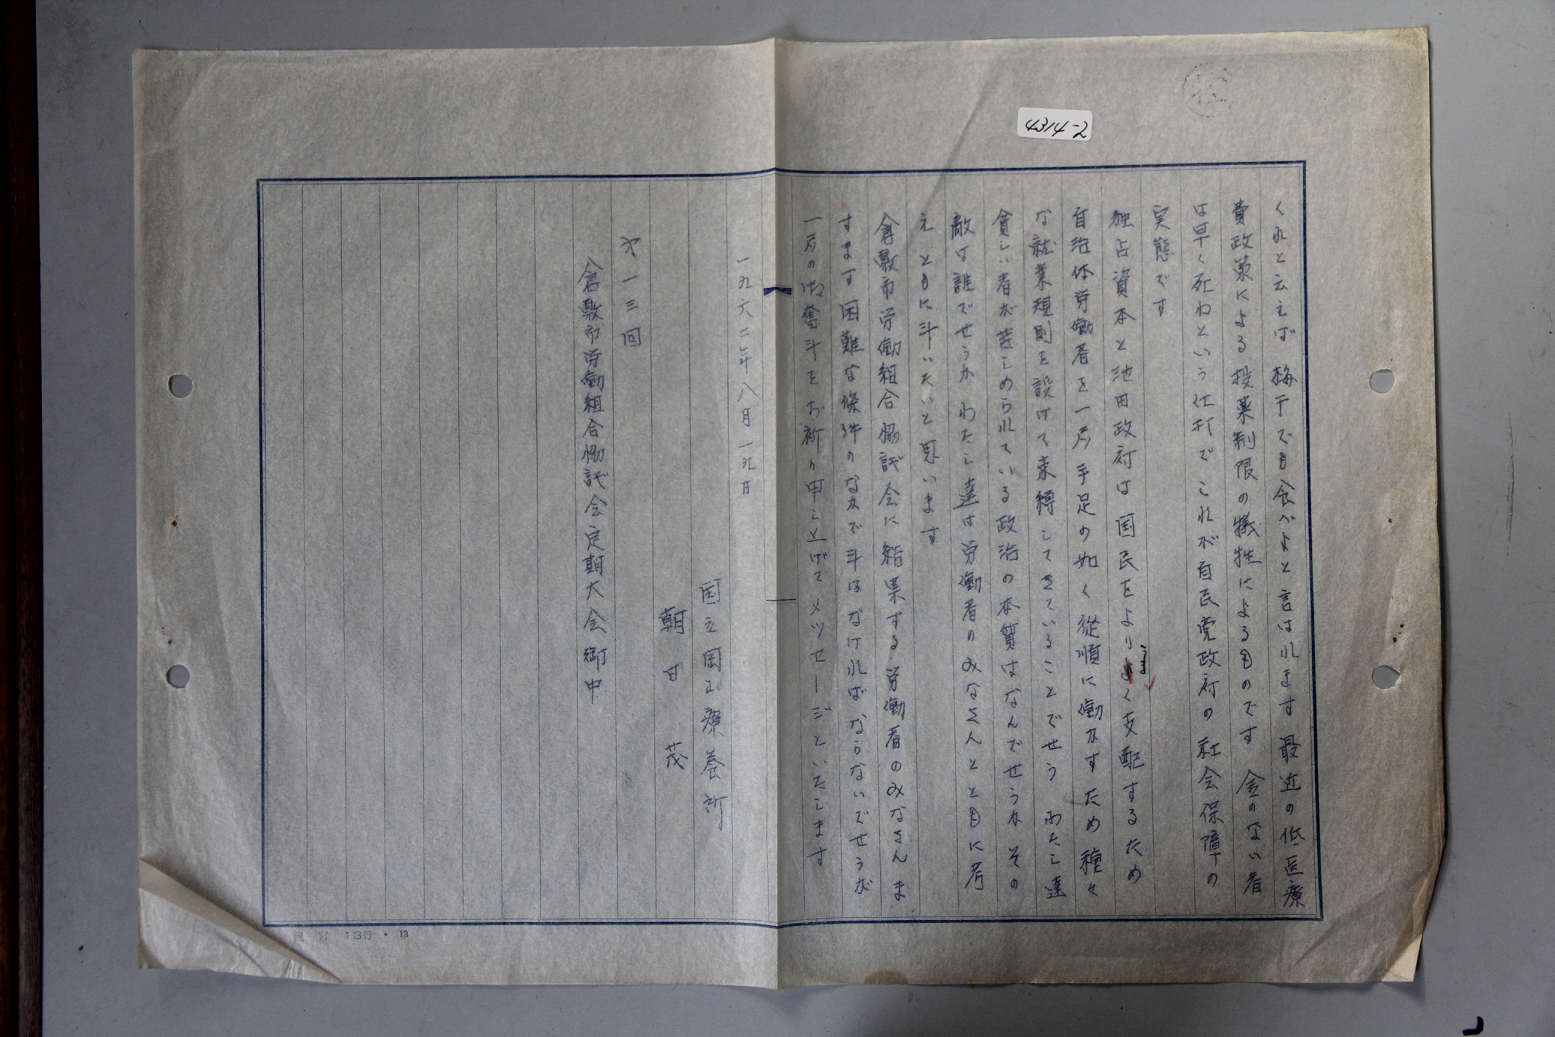 4314-2
くれと云えば 梅干でも食べよと言はれます 最近の低医療
費政策による投薬制限の犠牲によるものです 金のない者
は早く死ねという仕打で これが自民党政府の社会保障の
実態です
独占資本と池田政府は国民をより よく支配するため
自治体労働者を一層手足の如く従順に働かすため種々
な就業規則を設けて束縛してきていることでせう わたし達
貧しい者が苦しめられている政治の本質はなんでせうか その
敵は誰でせうか わたし達は労働者のみなさんとともに考
え ともに斗いたいと思います
倉敷市労働組合協議会に結集する労働者のみなさん ま
すます困難な條件のなかで斗はなければならないでせうが
一層の御奮斗をお祈り申し上げてメッセージといたします
一九六二年八月一九日
国立岡山療養所
朝日 茂
才一三回
倉敷市労働組合協議会定期大会御中
135・13